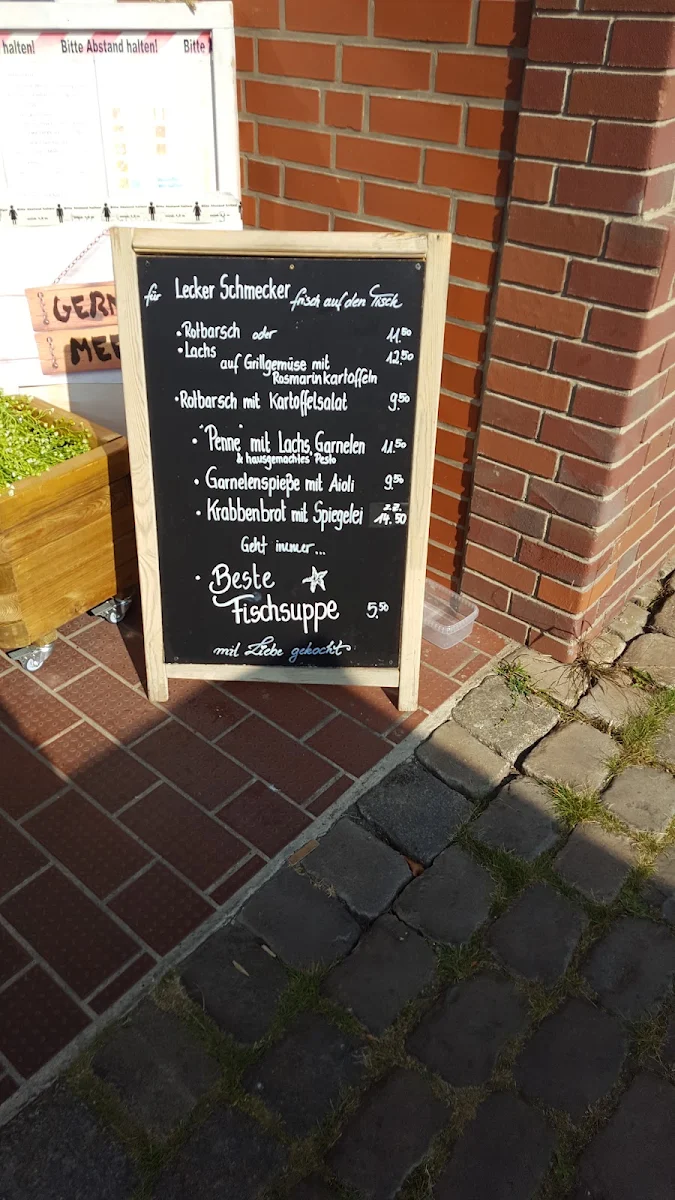 halten! Bitte Abstand halten! Bitte
GERN
MEE
für Lecker Schmecker frisch auf den Tisch
• Rotbarsch oder 11.50
• Lachs 12.50
auf Grillgemüse mit
Rosmarinkartoffeln
• Rotbarsch mit Kartoffelsalat 9.50
• "Penne" mit Lachs, Garnelen 11.50
& hausgemachtes Pesto
• Garnelenspieße mit Aioli 9.50
• Krabbenbrot mit Spiegelei z.Z. 14.50
Geht immer...
• Beste
Fischsuppe 5.50
mit Liebe gekocht